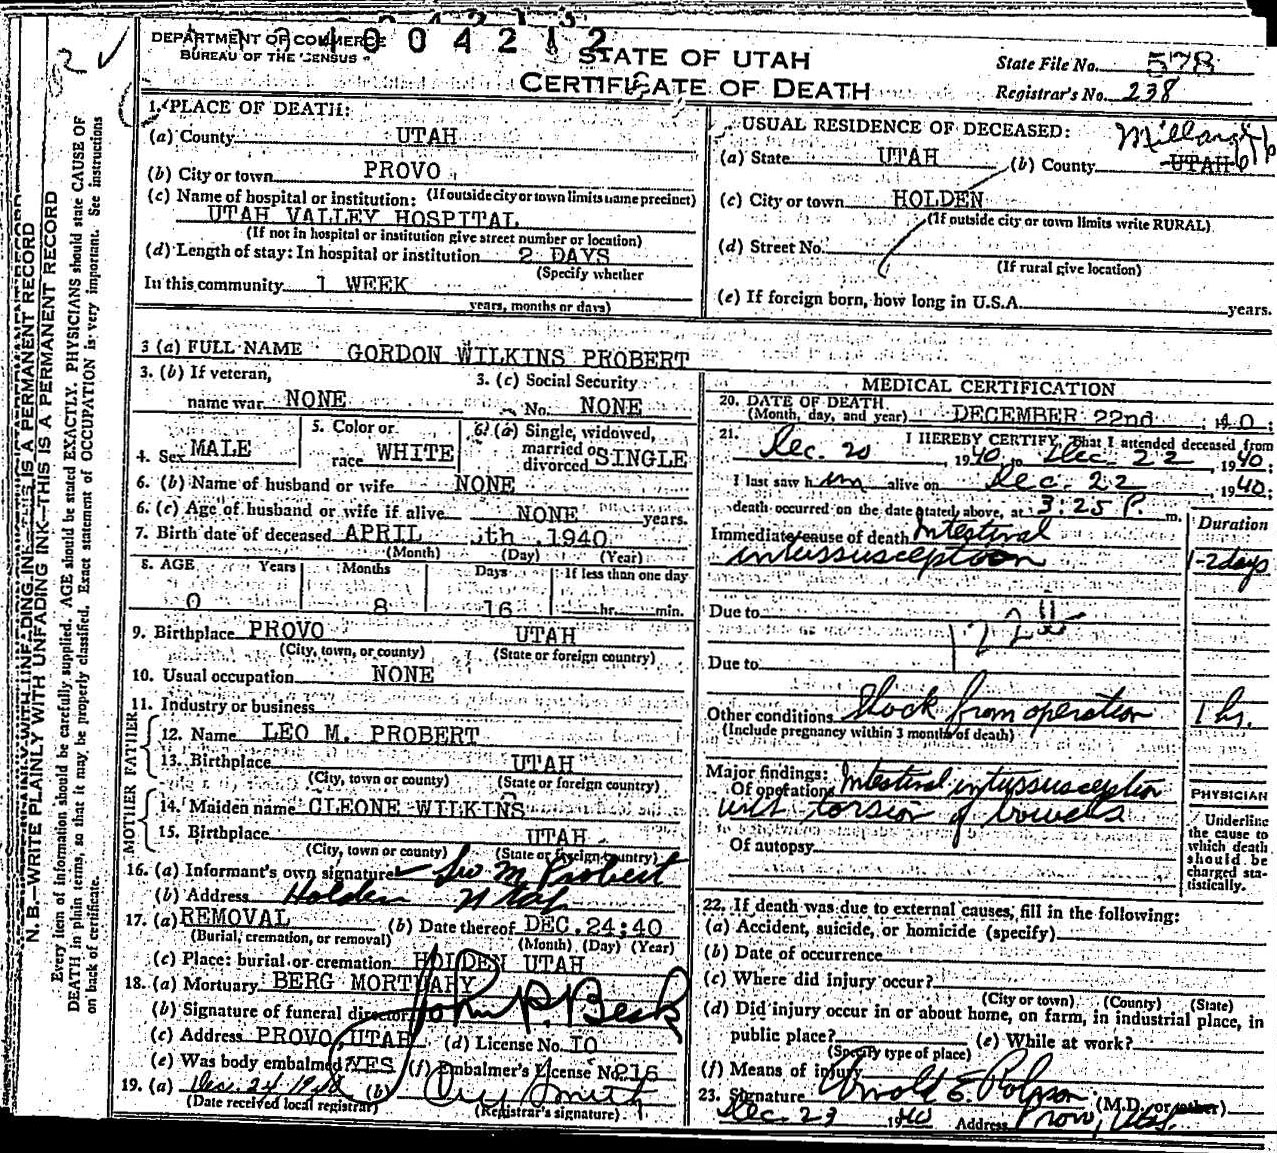 1004212
DEPARTMENT OF COMMERCE
BUREAU OF THE CENSUS
STATE OF UTAH
CERTIFICATE OF DEATH
State File No. 578
Registrar's No. 238
N. B.—WRITE PLAINLY WITH UNFADING INK—THIS IS A PERMANENT RECORD
Every item of information should be carefully supplied. AGE should be stated EXACTLY. PHYSICIANS should state CAUSE OF
DEATH in plain terms, so that it may be properly classified. Exact statement of OCCUPATION is very important. See instructions
on back of certificate.
1. PLACE OF DEATH:
(a) County UTAH
(b) City or town PROVO
(If outside city or town limits name precinct)
(c) Name of hospital or institution:
UTAH VALLEY HOSPITAL
(If not in hospital or institution give street number or location)
(d) Length of stay: In hospital or institution 2 DAYS
(Specify whether
In this community 1 WEEK
years, months or days)
USUAL RESIDENCE OF DECEASED:
Millard
(a) State UTAH (b) County UTAH
(c) City or town HOLDEN
(If outside city or town limits write RURAL)
(d) Street No.
(If rural give location)
(e) If foreign born, how long in U.S.A. years.
3 (a) FULL NAME GORDON WILKINS PROBERT
3. (b) If veteran,
name war NONE
3. (c) Social Security
No. NONE
4. Sex MALE
5. Color or
race WHITE
6. (a) Single, widowed,
married or
divorced SINGLE
6. (b) Name of husband or wife NONE
6. (c) Age of husband or wife if alive NONE years.
7. Birth date of deceased APRIL th 1940
(Month) (Day) (Year)
8. AGE Years Months Days If less than one day
0 8 16 hr. min.
9. Birthplace PROVO UTAH
(City, town, or county) (State or foreign country)
10. Usual occupation NONE
11. Industry or business
FATHER
12. Name LEO M. PROBERT
13. Birthplace UTAH
(City, town or county) (State or foreign country)
MOTHER
14. Maiden name CLEONE WILKINS
15. Birthplace UTAH
(City, town or county) (State or foreign country)
16. (a) Informant's own signature Leo M Probert
(b) Address Holden Utah
17. (a) REMOVAL (b) Date thereof DEC. 24:40
(Burial, cremation, or removal) (Month) (Day) (Year)
(c) Place: burial or cremation HOLDEN UTAH
18. (a) Mortuary BERG MORTUARY
(b) Signature of funeral director John P. Beck
(c) Address PROVO, UTAH (d) License No. 10
(e) Was body embalmed? YES (f) Embalmer's License No. 216
19. (a) Dec. 24, 1940 (b) Smith
(Date received local registrar) (Registrar's signature)
MEDICAL CERTIFICATION
20. DATE OF DEATH
(Month, day, and year) DECEMBER 22nd 40
21. I HEREBY CERTIFY, That I attended deceased from
Dec. 20, 1940 to Dec. 22, 1940;
I last saw him alive on Dec. 22, 1940;
death occurred on the date stated above, at 3:25 P. m.
Duration
Immediate cause of death Intestinal
intussusception 1-2 days
Due to
Due to
Other conditions Shock from operation 1 hr.
(Include pregnancy within 3 months of death)
Major findings:
Of operations Intestinal intussusception
with torsion of bowels
Of autopsy
PHYSICIAN
Underline
the cause to
which death
should be
charged sta-
tistically.
22. If death was due to external causes, fill in the following:
(a) Accident, suicide, or homicide (specify)
(b) Date of occurrence
(c) Where did injury occur?
(City or town) (County) (State)
(d) Did injury occur in or about home, on farm, in industrial place, in
public place? (e) While at work?
(Specify type of place)
(f) Means of injury
23. Signature Arnold E. Robison (M.D. or other)
Dec. 23 1940 Address Provo, Utah.